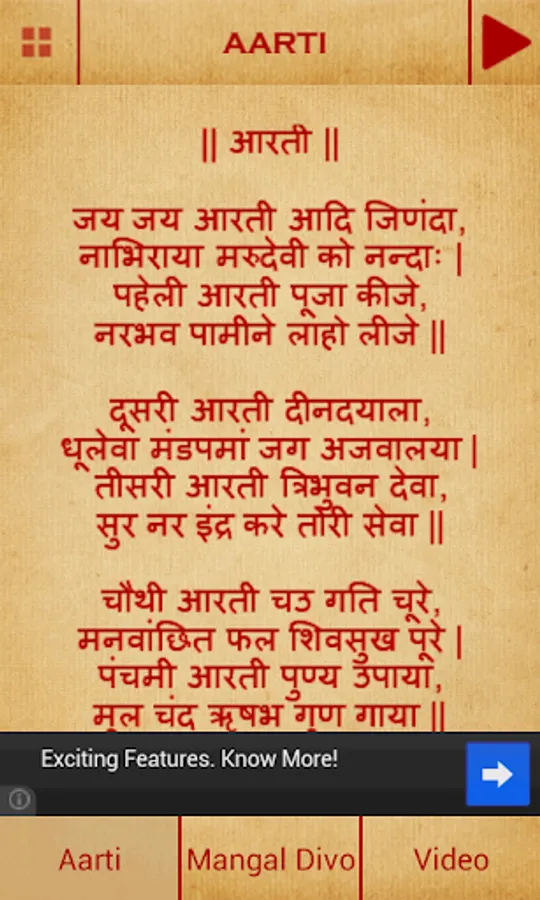 AARTI
|| आरती ||
जय जय आरती आदि जिणंदा,
नाभिराया मरुदेवी को नन्दाः |
पहेली आरती पूजा कीजे,
नरभव पामीने लाहो लीजे ||
दूसरी आरती दीनदयाला,
धूलेवा मंडपमां जग अजवालया |
तीसरी आरती त्रिभुवन देवा,
सुर नर इंद्र करे तोरी सेवा ||
चौथी आरती चउ गति चूरे,
मनवांछित फल शिवसुख पूरे |
पंचमी आरती पुण्य उपाया,
मुल चंद ऋषभ गुण गाया ||
Exciting Features. Know More!
Aarti
Mangal Divo
Video